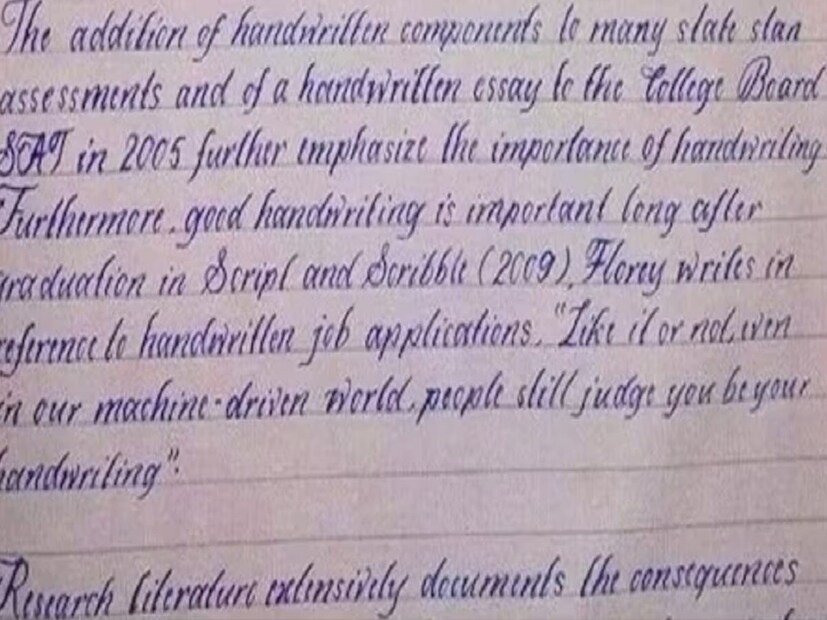 The addition of handwritten components to many state stan
assessments and of a handwritten essay to the College Board
SAT in 2005 further emphasize the importance of handwriting
Furthermore, good handwriting is important long after
graduation in Script and Scribble (2009), Florey writes in
reference to handwritten job applications, "Like it or not, even
in our machine-driven world, people still judge you be your
handwriting".
Research literature extensively documents the consequences